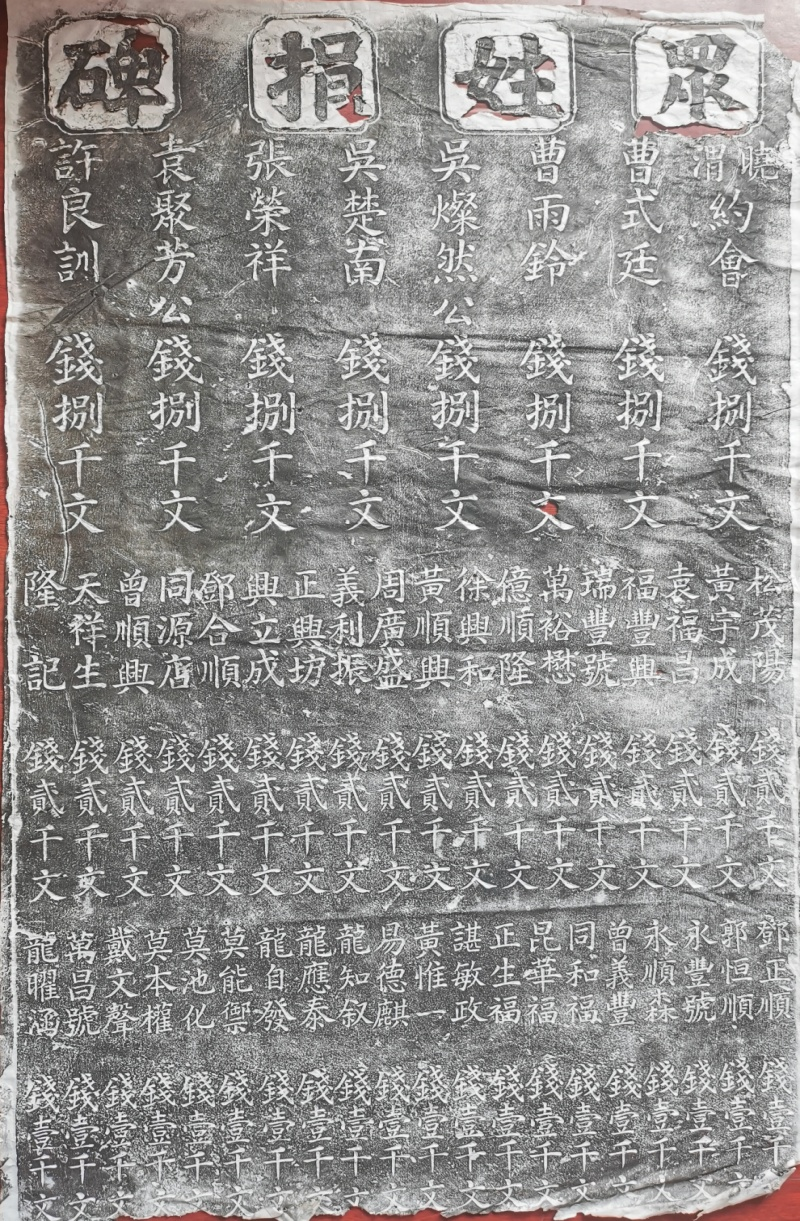 眾姓捐碑
曉渭約會 錢捌千文
曹式廷 錢捌千文
曹雨鈴 錢捌千文
吳燦然公 錢捌千文
吳楚南 錢捌千文
張榮祥 錢捌千文
袁聚芳公 錢捌千文
許良訓 錢捌千文
松茂陽 錢貳千文
黃宇成 錢貳千文
袁福昌 錢貳千文
福豐興 錢貳千文
瑞豐號 錢貳千文
萬裕懋 錢貳千文
億順隆 錢貳千文
徐興和 錢貳千文
黃順興 錢貳千文
周廣盛 錢貳千文
義利振 錢貳千文
正興坊 錢貳千文
興立成 錢貳千文
鄧合順 錢貳千文
同源店 錢貳千文
曾順興 錢貳千文
天祥生 錢貳千文
隆記 錢貳千文
鄧正順 錢壹千文
郭恒順 錢壹千文
永豐號 錢壹千文
永順森 錢壹千文
曾義豐 錢壹千文
同和福 錢壹千文
昆華福 錢壹千文
正生福 錢壹千文
諶敏政 錢壹千文
黃惟一 錢壹千文
易德麒 錢壹千文
龍知叙 錢壹千文
龍應泰 錢壹千文
龍自發 錢壹千文
莫能禦 錢壹千文
莫池化 錢壹千文
莫本權 錢壹千文
戴文聲 錢壹千文
萬昌號 錢壹千文
龍曜涵 錢壹千文